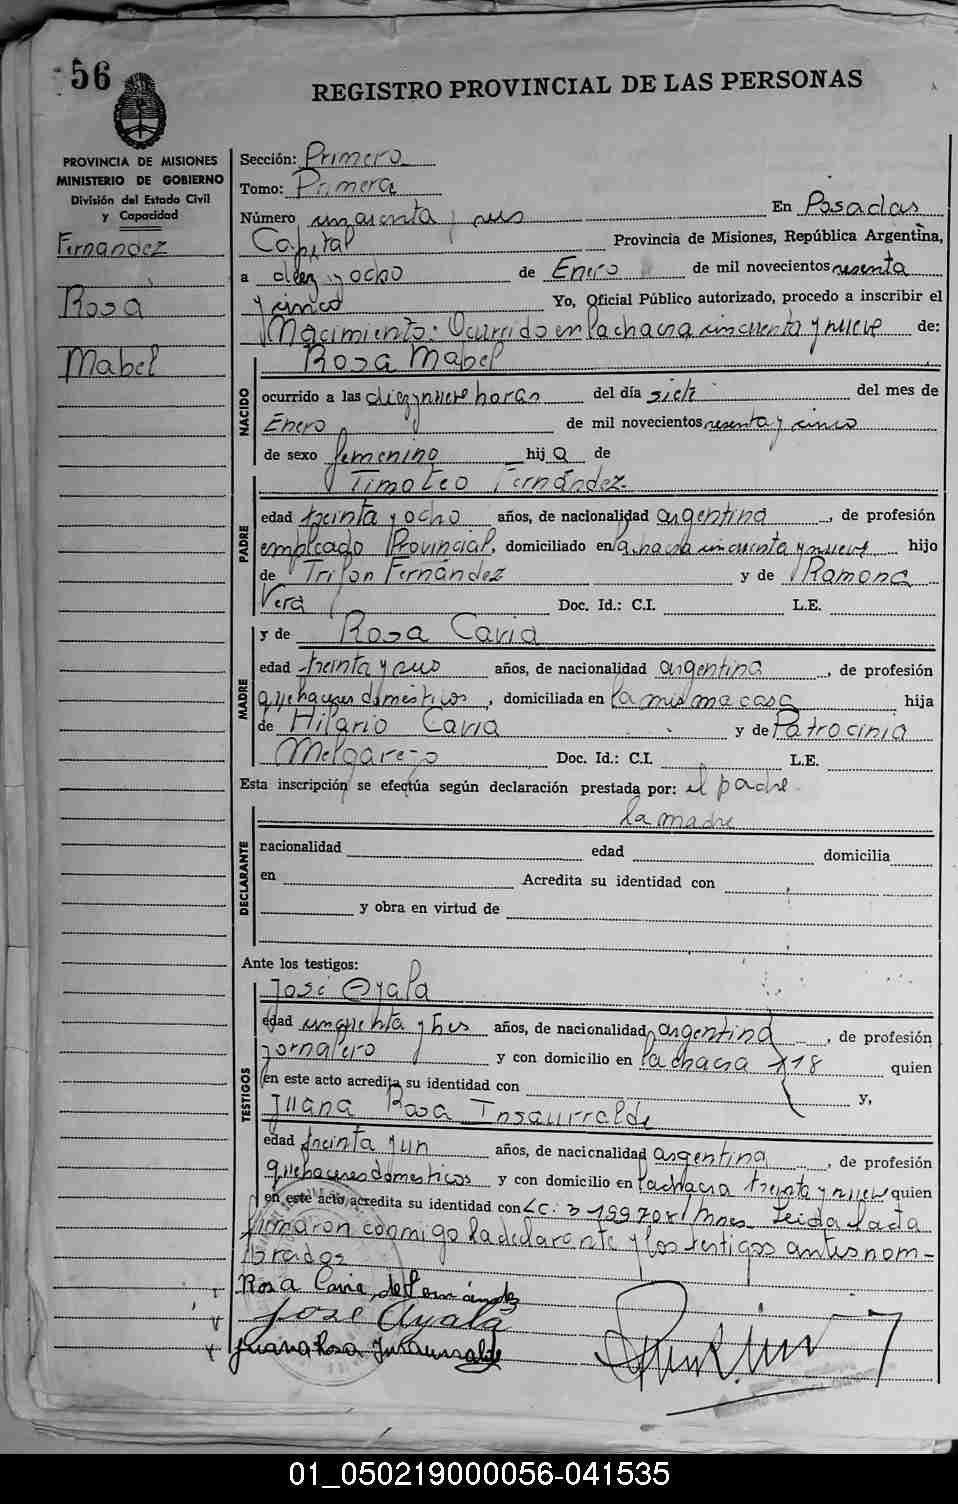 56
REGISTRO PROVINCIAL DE LAS PERSONAS
PROVINCIA DE MISIONES
MINISTERIO DE GOBIERNO
División del Estado Civil
y Capacidad
Fernandez
Rosa
Mabel
Sección: Primera
Tomo: Primera
Número cincuenta y seis En Posadas
Capital Provincia de Misiones, República Argentina,
a diez y ocho de Enero de mil novecientos sesenta
y cinco Yo, Oficial Público autorizado, procedo a inscribir el
Nacimiento: Ocurrido en la chacra cincuenta y nueve de:
Rosa Mabel
NACIDO
ocurrido a las diez y nueve horas del día siete del mes de
Enero de mil novecientos sesenta y cinco
de sexo femenino hija de
Timoteo Fernández
PADRE
edad treinta y ocho años, de nacionalidad argentina, de profesión
empleado Provincial, domiciliado en la chacra cincuenta y nueve hijo
de Trifon Fernández y de Ramona
Vera Doc. Id.: C.I. L.E.
MADRE
y de Rosa Cavia
edad treinta y seis años, de nacionalidad argentina, de profesión
quehaceres domésticos, domiciliada en la misma casa hija
de Hilario Cavia y de Patrocinia
Melgarejo Doc. Id.: C.I. L.E.
Esta inscripción se efectúa según declaración prestada por: el padre
la madre
DECLARANTE
nacionalidad edad domicilia
en Acredita su identidad con
y obra en virtud de
Ante los testigos:
José Ayala
TESTIGOS
edad cincuenta y tres años, de nacionalidad argentina, de profesión
jornalero y con domicilio en la chacra 118 quien
en este acto acredita su identidad con y,
Juana Rosa Insaurralde
edad treinta y un años, de nacionalidad argentina, de profesión
quehaceres domesticos y con domicilio en la chacra treinta y nueve quien
en este acto acredita su identidad con LC. Leida la acta
firmaron conmigo la declarante y los testigos antes nom-
brados
Rosa Cavia de Fernández
Jose Ayala
Juana Rosa Insaurralde
01_050219000056-041535